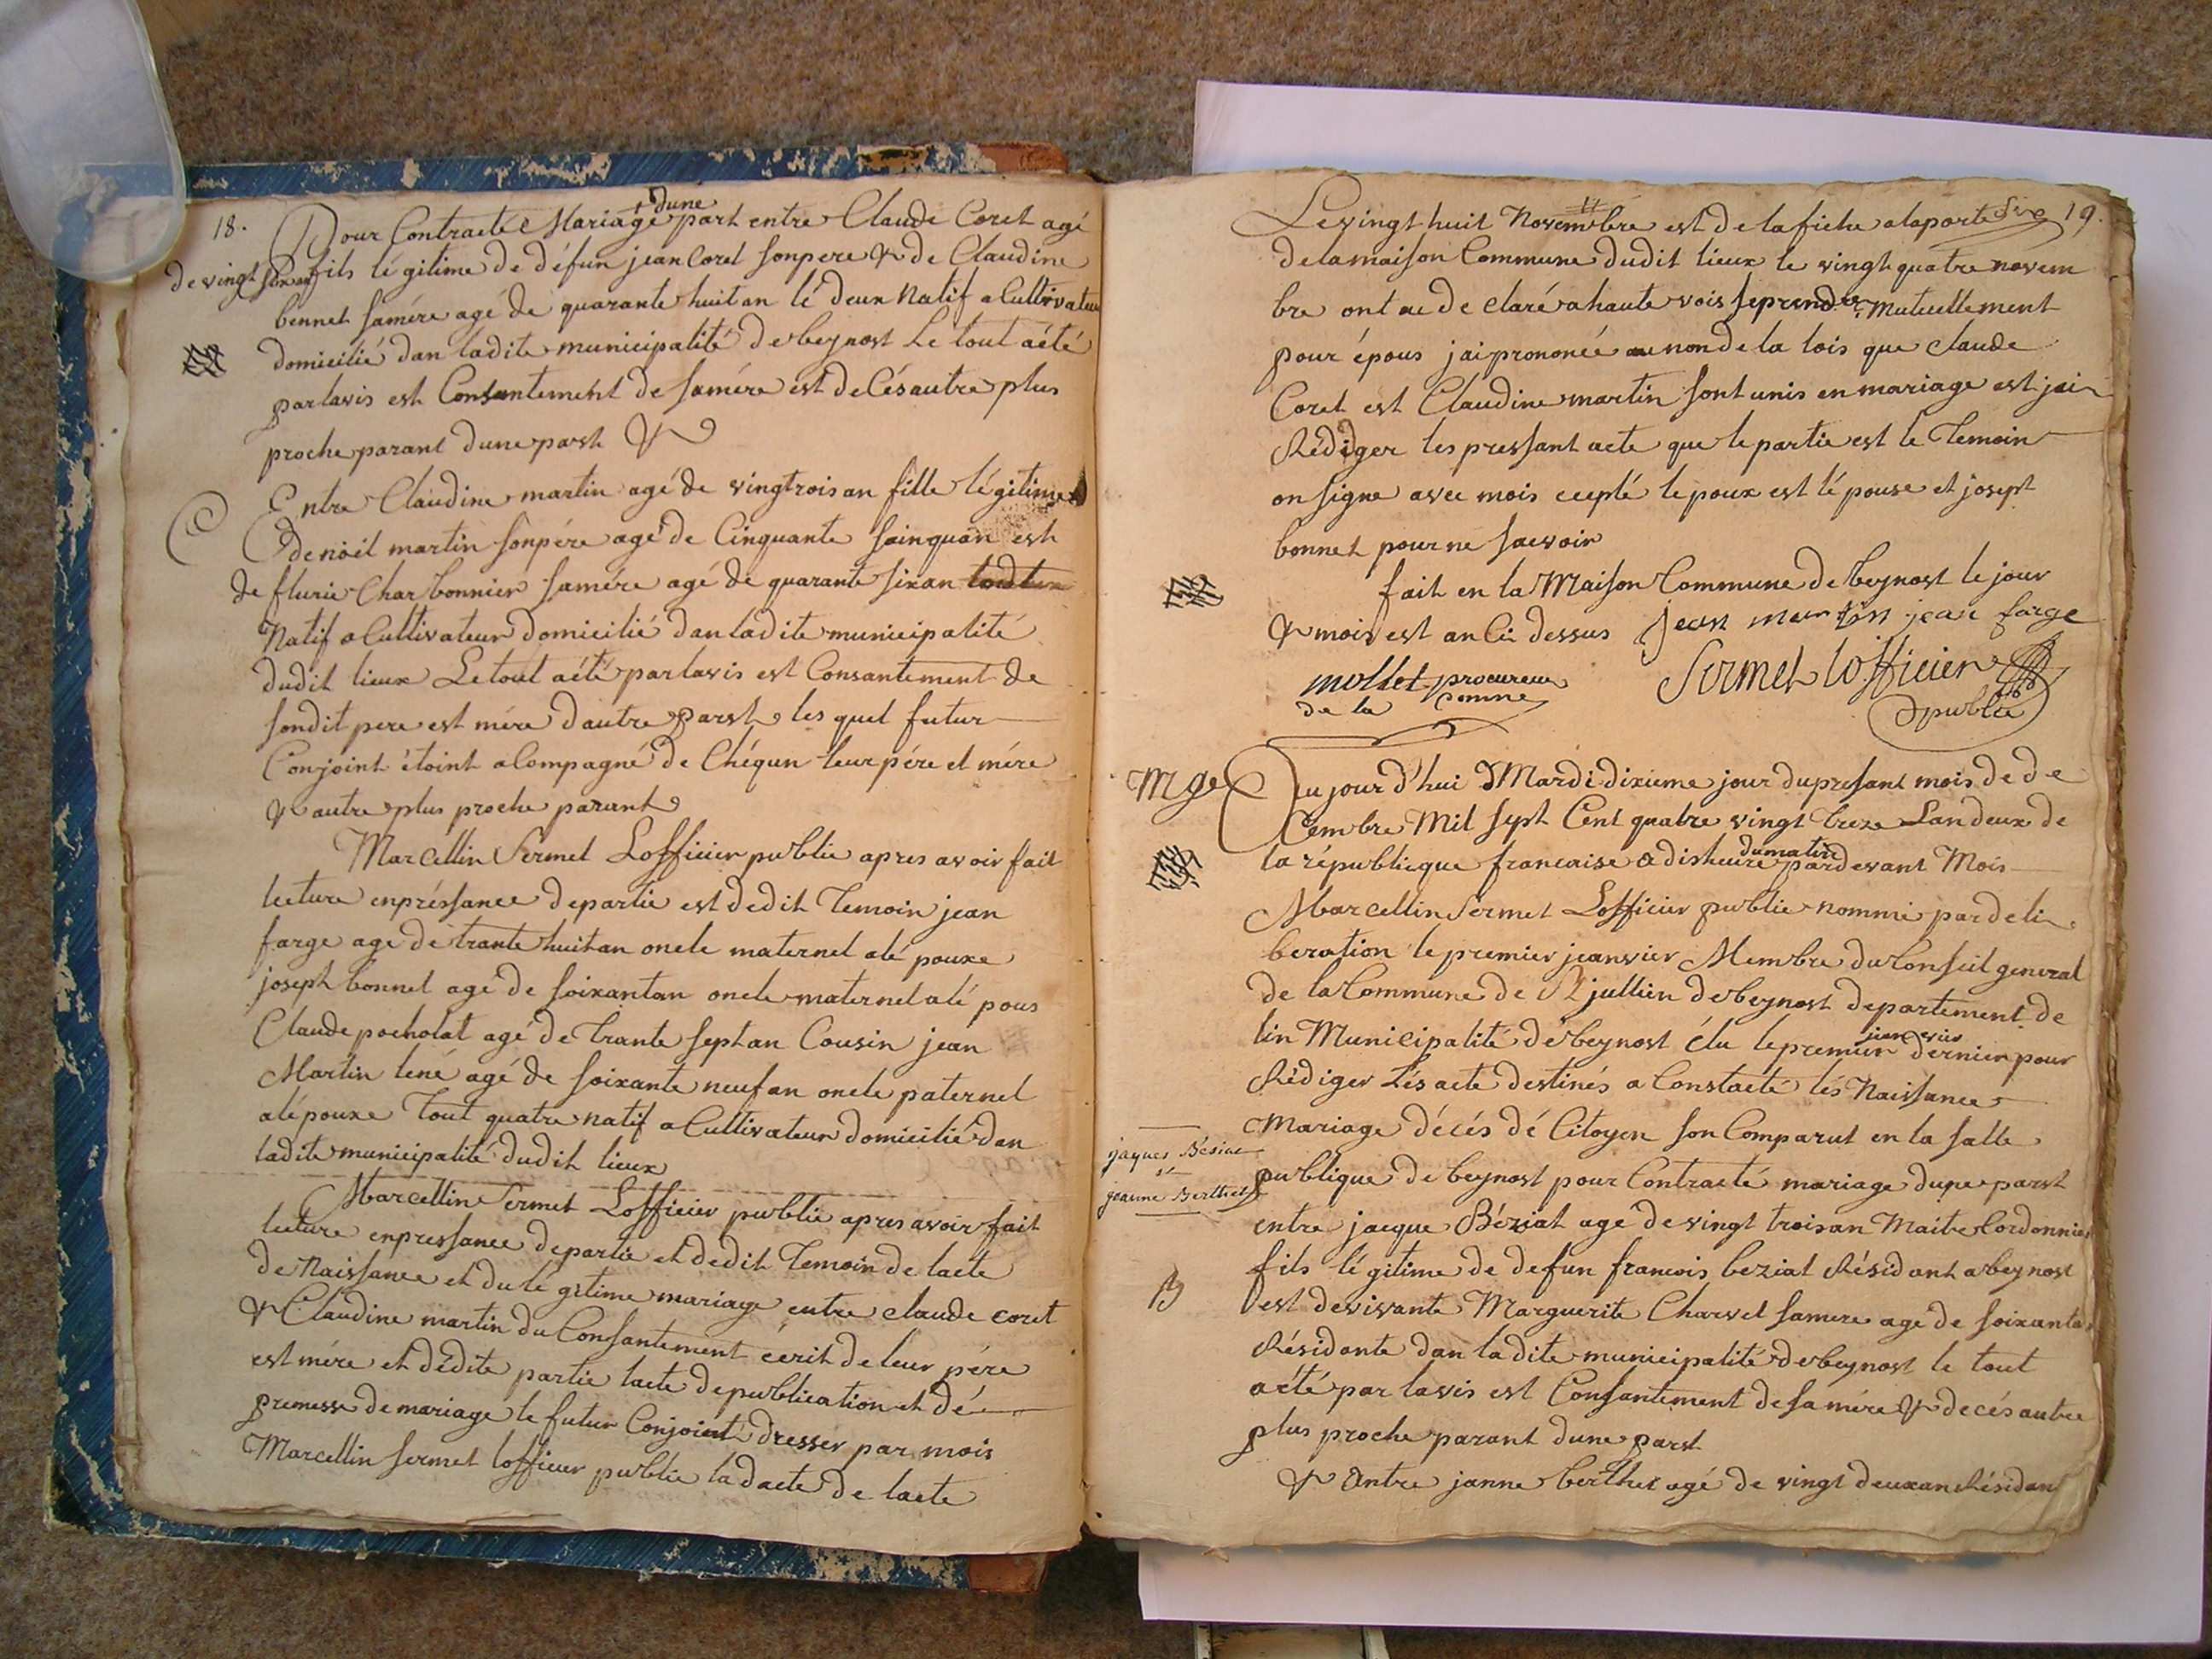 18.
Pour Contracté Mariage dune part entre Claude Coret agé
de vingt fils légitime de défun jean Coret son pere & de Claudine
bennet samére agé de quarante huit an lé deux Natif a Cultivateur
domicilié dan ladite municipalité de beynost Le tout aété
par lavis est Consantement de samére est de Césautre plus
proche parant dune part &
Entre Claudine martin agé de vingtrois an fille légitime
de noil martin sonpére agé de Cinquante sainquan est
de flurie Charbonnier samére agé de quarante sixan
Natif a Cultivateur domicilié dan ladite municipalité
dudit lieux Le tout aété par lavis est Consantement de
sondit pere est mére dautre parst les quel futur
Conjoint étoint a Compagné de Chéqun leur pére et mére
& autre plus proche parant
Marcellin Sermet Lofficier public apres avoir fait
lecture enpréssance departie est dedit Temoin jean
farge age de trante huit an oncle maternel alé pouxe
joseph bonnet age de soixantan oncle maternel alé pous
Claude pocholat agé de Trante sept an Cousin jean
Martin lené agé de soixante neuf an oncle paternel
alé pouxe Tout quatre natif a Cultivateur domicilié dan
ladite municipalité dudit lieux
Marcellin Sermet Lofficier public apres avoir fait
lecture enpressance departie et dedit Temoin de lacte
de Naissance et du lé gitime mariage entre claude coret
& Claudine martin du Consantement écrit de leur pére
est mére et dédite partie lacte depublication et dé
premesse de mariage le futur Conjoint dresser par mois
Marcellin sermet lofficier public la dacte de lacte
19.
Le vingt huit Novembre est de la fiche alaporte
dela maison Commune dudit lieux le vingt quatre novem
bre ont ae de claré a haute vois seprendre mutuellement
pour épous jai prononcé au non de la lois que claude
Coret est Claudine martin sont unis en mariage est jai
Rédiger les pressant acte que le partie est le Temoin
on signe avec mois ceeplé le poux est lé pouse et josept
bonnet pour ne saevoir
fait en la Maison Commune de beynost le jour
& mois est an Cii dessus jean martin jean farge
mollet procureur
de la comne
Sermet lofficier
public
Mge
Aujourd'hui Mardi dixieme jour dupresant mois de de
Cembre Mil sept Cent quatre vingt treze Lan deux de
la républicque francaise a disheure dumatin pardevant Mois
Marcellin Sermet Lofficier public nommé par deli
beration le premier jeanvier Membre du Conseil general
de la Commune de St jullien de beynost departement de
lin Municipalité de beynost élu le premier jeanvier dernier pour
Rédiger Lés acte destinés a Constacté lés Naissance
Mariage décés dé Citoyen son Comparut en la salle
jaques Besiac
et
jeanne Berthet
publique de beynost pour Contracté mariage dune parst
entre jacque Béziat age de vingt trois an Maitre Cordonnier
fils légitime de defun francois beziat Résidant a beynost
est devivante Marguerite Charvet samere age de soixanta
Résidante dan la dite municipalité de beynost le tout
aété par lavis est Consantement de samére & de cés autre
plus proche parant dune parst
& Antre janne berthet agé de vingt deuxan Résidan